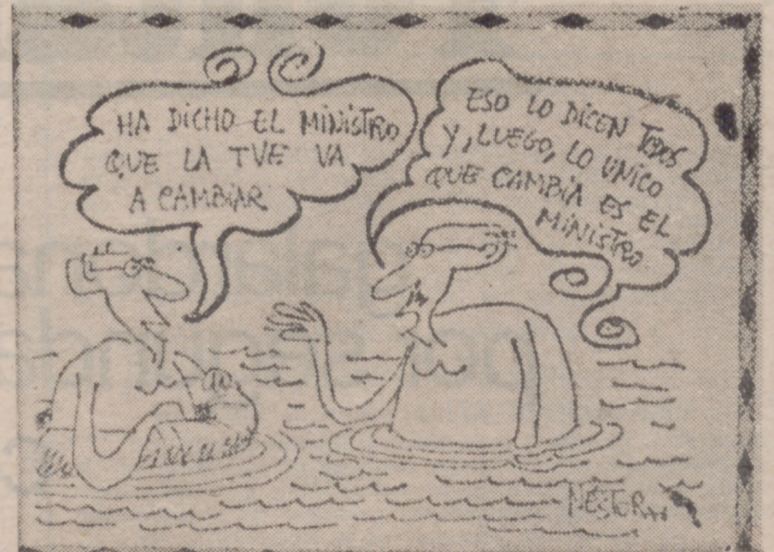 HA DICHO EL MINISTRO
QUE LA TVE VA
A CAMBIAR
ESO LO DICEN TODOS
Y, LUEGO, LO UNICO
QUE CAMBIA ES EL
MINISTRO.
NÉSTOR